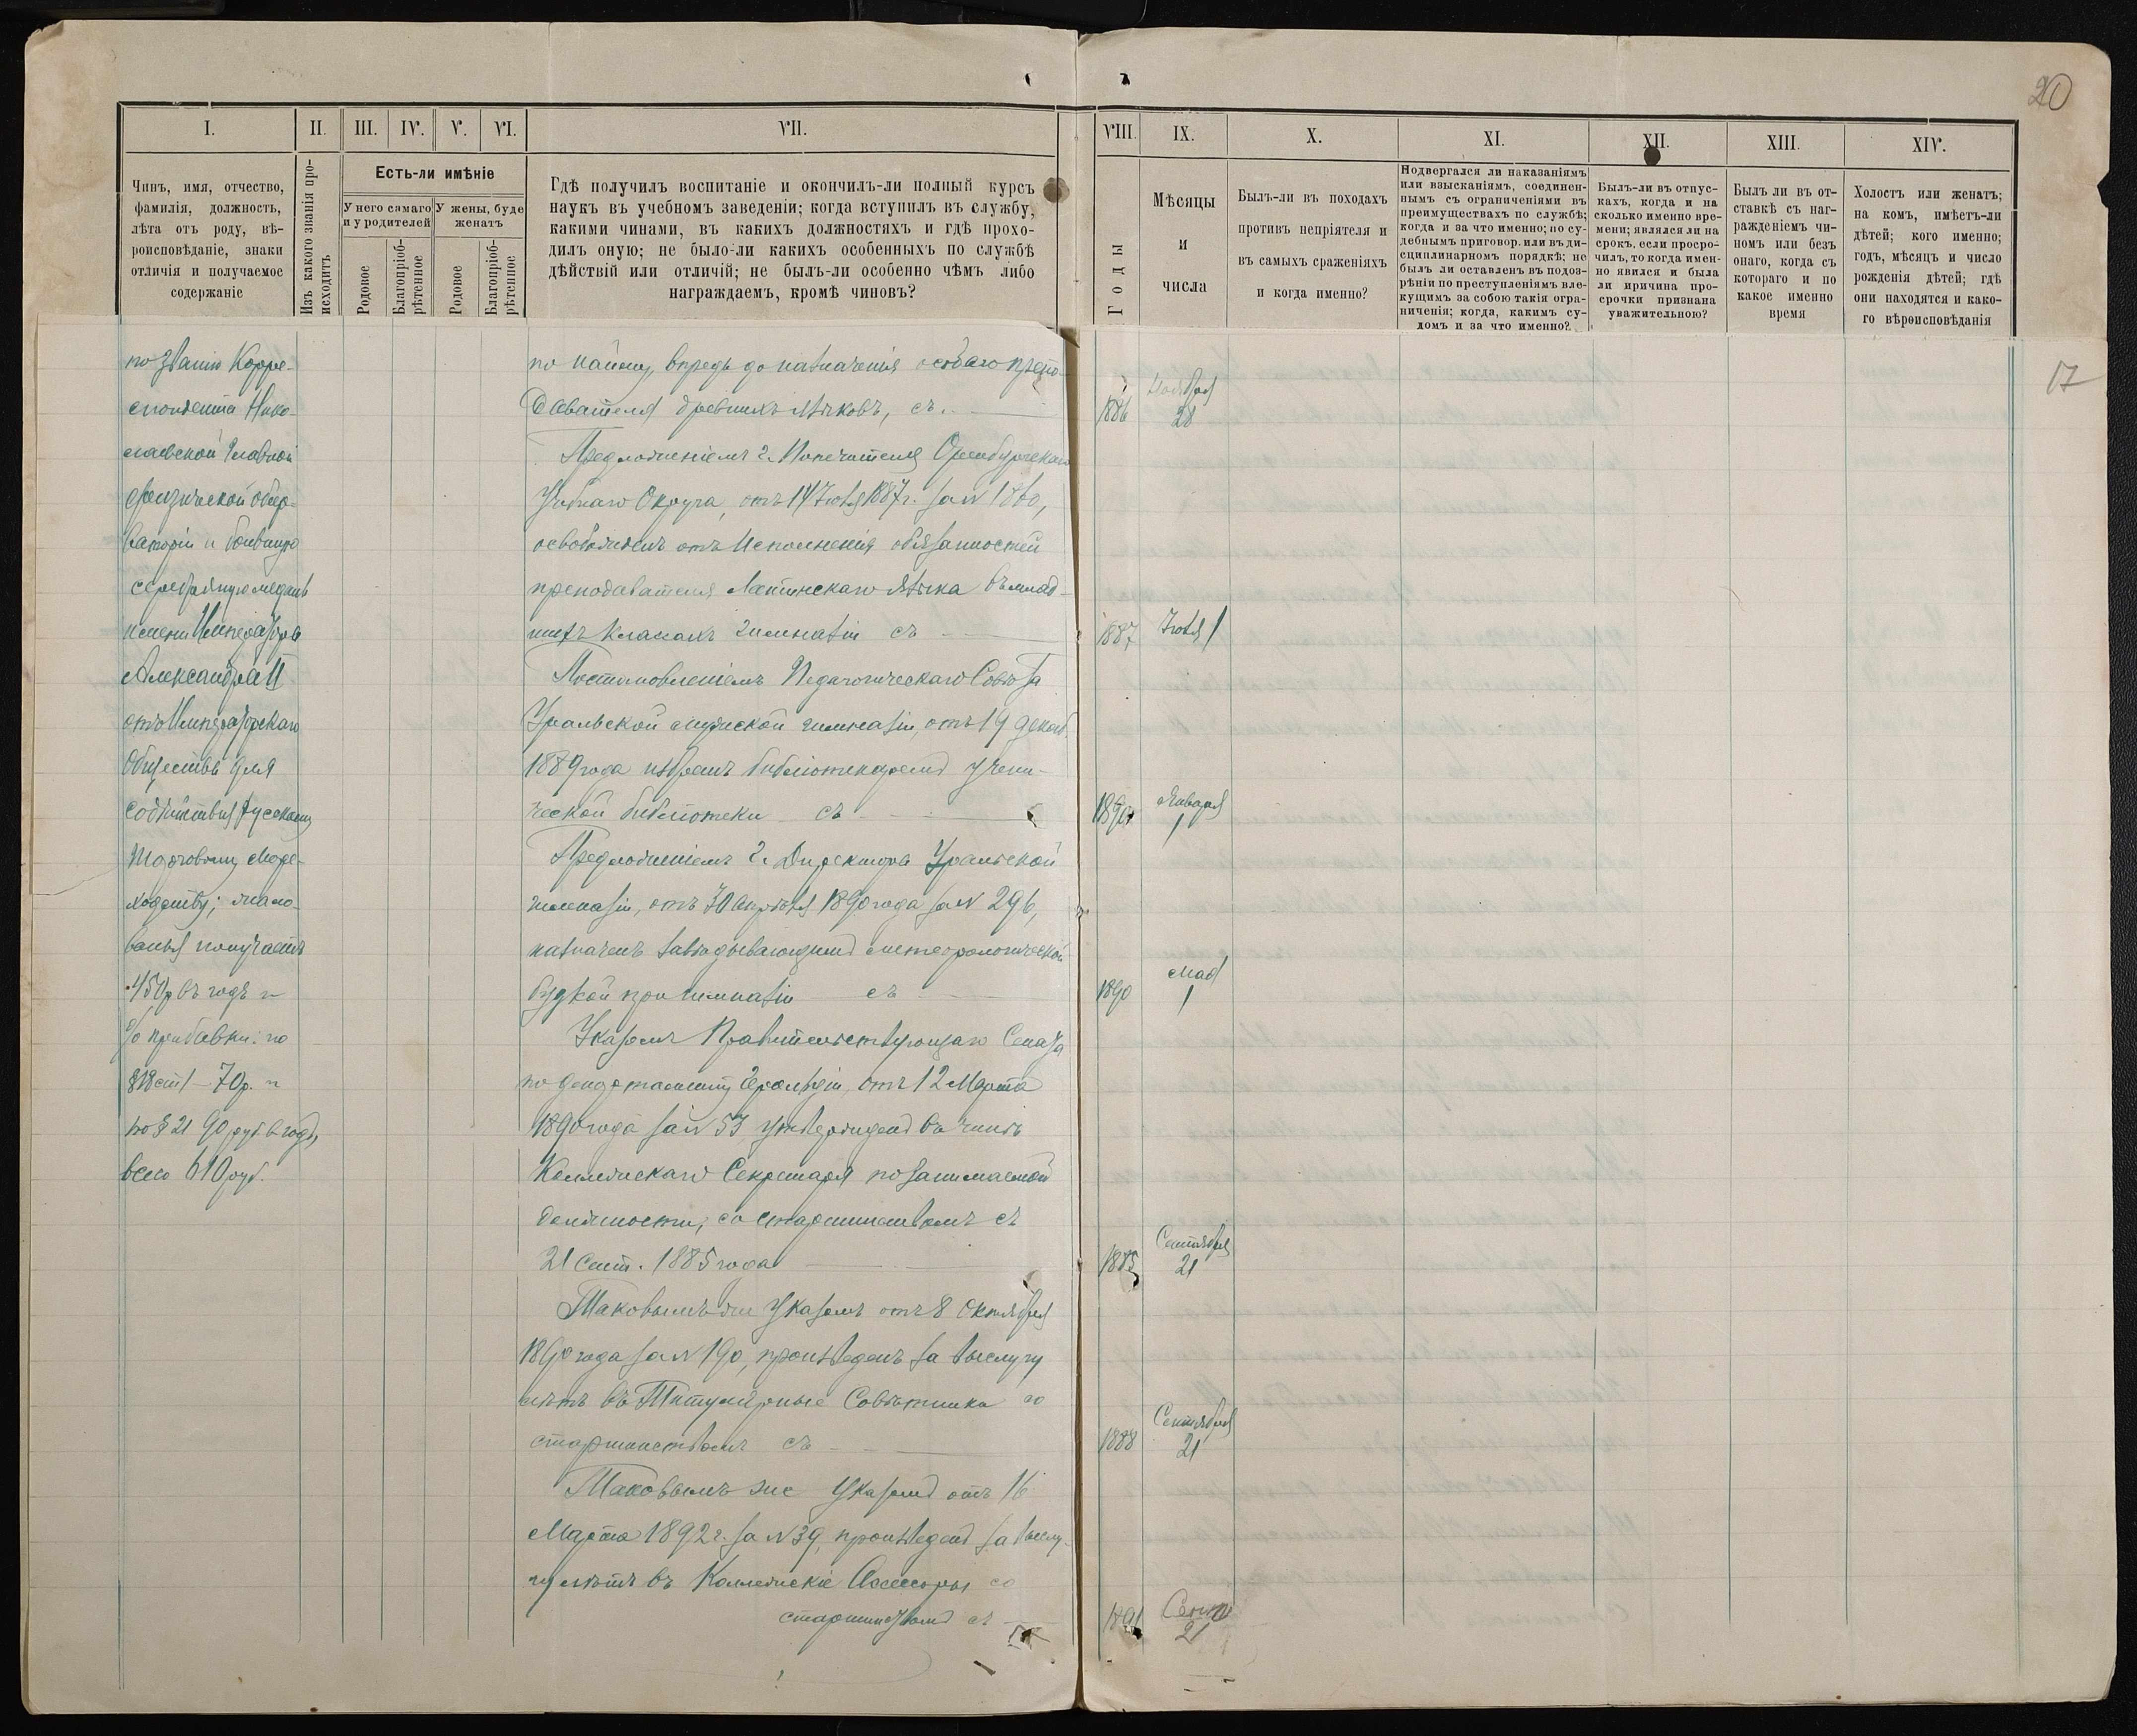 20
I.
II.
III.
IV.
V.
VI.
VII.
VIII.
IX.
X.
XI.
XII.
XIII.
XIV.
Чинъ, имя, отчество,
фамилія, должность,
лѣта отъ роду, вѣ-
роисповѣданіе, знаки
отличія и получаемое
содержаніе
Изъ какого званія про-
исходитъ
Есть-ли имѣніе
У него самаго
и у родителей
У жены, буде
женатъ
Родовое
Благопріоб-
рѣтенное
Родовое
Благопріоб-
рѣтенное
Гдѣ получилъ воспитаніе и окончилъ-ли полный курсъ
наукъ въ учебномъ заведеніи; когда вступилъ въ службу,
какими чинами, въ какихъ должностяхъ и гдѣ прохо-
дилъ оную; не было-ли какихъ особенныхъ по службѣ
дѣйствій или отличій; не былъ-ли особенно чѣмъ либо
награждаемъ, кромѣ чиновъ?
Годы
Мѣсяцы
и
числа
Былъ-ли въ походахъ
противъ непріятеля и
въ самыхъ сраженіяхъ
и когда именно?
Подвергался ли наказаніямъ
или взысканіямъ, соединен-
нымъ съ ограниченіями въ
преимуществахъ по службѣ;
когда и за что именно; по су-
дебнымъ приговор. или въ ди-
сциплинарномъ порядкѣ; не
былъ ли оставленъ въ подоз-
рѣніи по преступленіямъ вле-
кущимъ за собою такія огра-
ниченія; когда, какимъ су-
домъ и за что именно?
Былъ-ли въ отпус-
кахъ, когда и на
сколько именно вре-
мени; являлся ли на
срокъ, если просро-
чилъ, то когда имен-
но явился и была
ли иричина про-
срочки признана
уважительною?
Былъ ли въ от-
ставкѣ съ наг-
ражденіемъ чи-
номъ или безъ
онаго, когда съ
котораго и по
какое именно
время
Холостъ или женатъ;
на комъ, имѣетъ-ли
дѣтей; кого именно;
годъ, мѣсяцъ и число
рожденія дѣтей; гдѣ
они находятся и како-
го вѣроисповѣданія
17
по званію Корре-
спондента Нико-
лаевской Главной
физической обсер-
ваторіи и
серебряную медаль
имени Императора
Александра II
отъ Императорскаго
Общества для
содѣйствія русскому
торговому море-
ходству; жало-
ванья получаетъ
450р въ годъ и
% прибавки: по
§18 ст 1 - 70р. и
по § 21 90 руб. въ годъ,
всего 610 руб.
по найму, впредь до назначенія особаго препо-
давателя древнихъ языковъ, съ
Предложеніемъ г. Попечителя Оренбургскаго
Учебнаго Округа, отъ 14 Іюля 1887 г. за N 1860,
освобожденъ отъ исполненія обязанностей
преподавателя Латинскаго языка въ млад-
шихъ классахъ гимназіи съ
Постановленіемъ Педагогическаго Совѣта
Уральской мужской гимназіи, отъ 19 декаб.
1889 года избранъ библіотекаремъ учени-
ческой библіотеки съ
Предложеніемъ г. Директора Уральской
гимназіи, отъ 30 апрѣля 1890 года за N 296,
назначенъ завѣдывающимъ метеорологической
будкой при гимназіи съ
Указомъ Правительствующаго Сената
по департаменту Герольдіи, отъ 12 Марта
1890 года за N 53 утвержденъ въ чинѣ
Коллежскаго Секретаря по занимаемой
должности, со старшинствомъ съ
21 Сент. 1885 года
Таковымъ же Указомъ отъ 8 Октября
1890 года за N 190, произведенъ за выслугу
лѣтъ въ Титулярные Совѣтники со
старшинствомъ съ
Таковымъ же Указомъ отъ 16
Марта 1892 г. за N 39, произведенъ за выслу-
гу лѣтъ въ Коллежскіе Ассесоры со
старшинствомъ съ
1886 Ноября 28
1887 Іюля 1
1890 Января 1
1890 Мая 1
1885 Сентября 21
1888 Сентября 21
1891 Сент 21